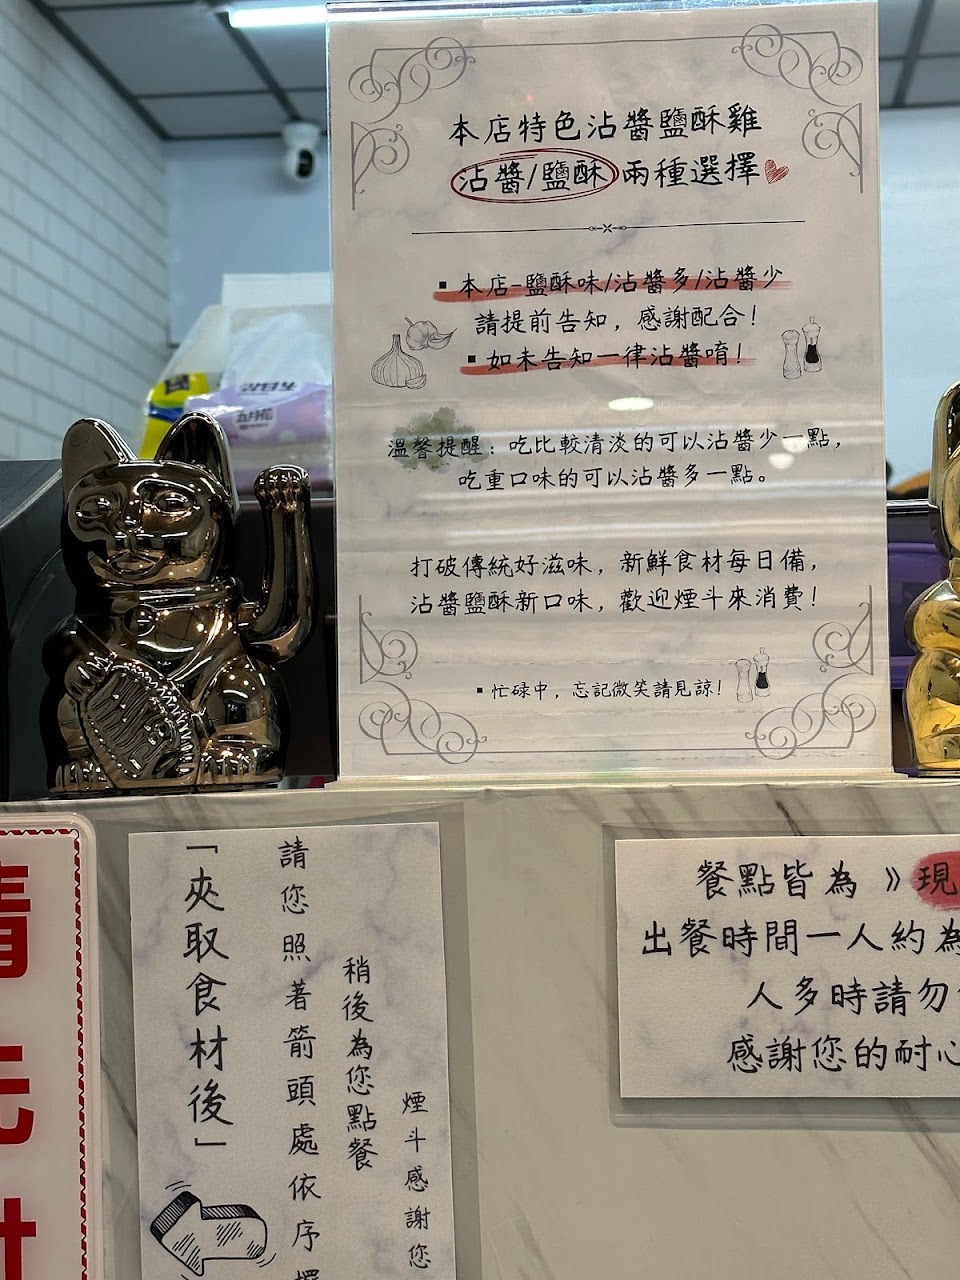 本店特色沾醬鹽酥雞
沾醬/鹽酥 兩種選擇
▪ 本店-鹽酥味/沾醬多/沾醬少
請提前告知，感謝配合！
▪ 如未告知一律沾醬唷！
溫馨提醒：吃比較清淡的可以沾醬少一點，
吃重口味的可以沾醬多一點。
打破傳統好滋味，新鮮食材每日備，
沾醬鹽酥新口味，歡迎煙斗來消費！
▪ 忙碌中，忘記微笑請見諒！
「夾取食材後」
請您照著箭頭處依序
稍後為您點餐
煙斗感謝您
餐點皆為 》現
出餐時間一人約為
人多時請勿
感謝您的耐心